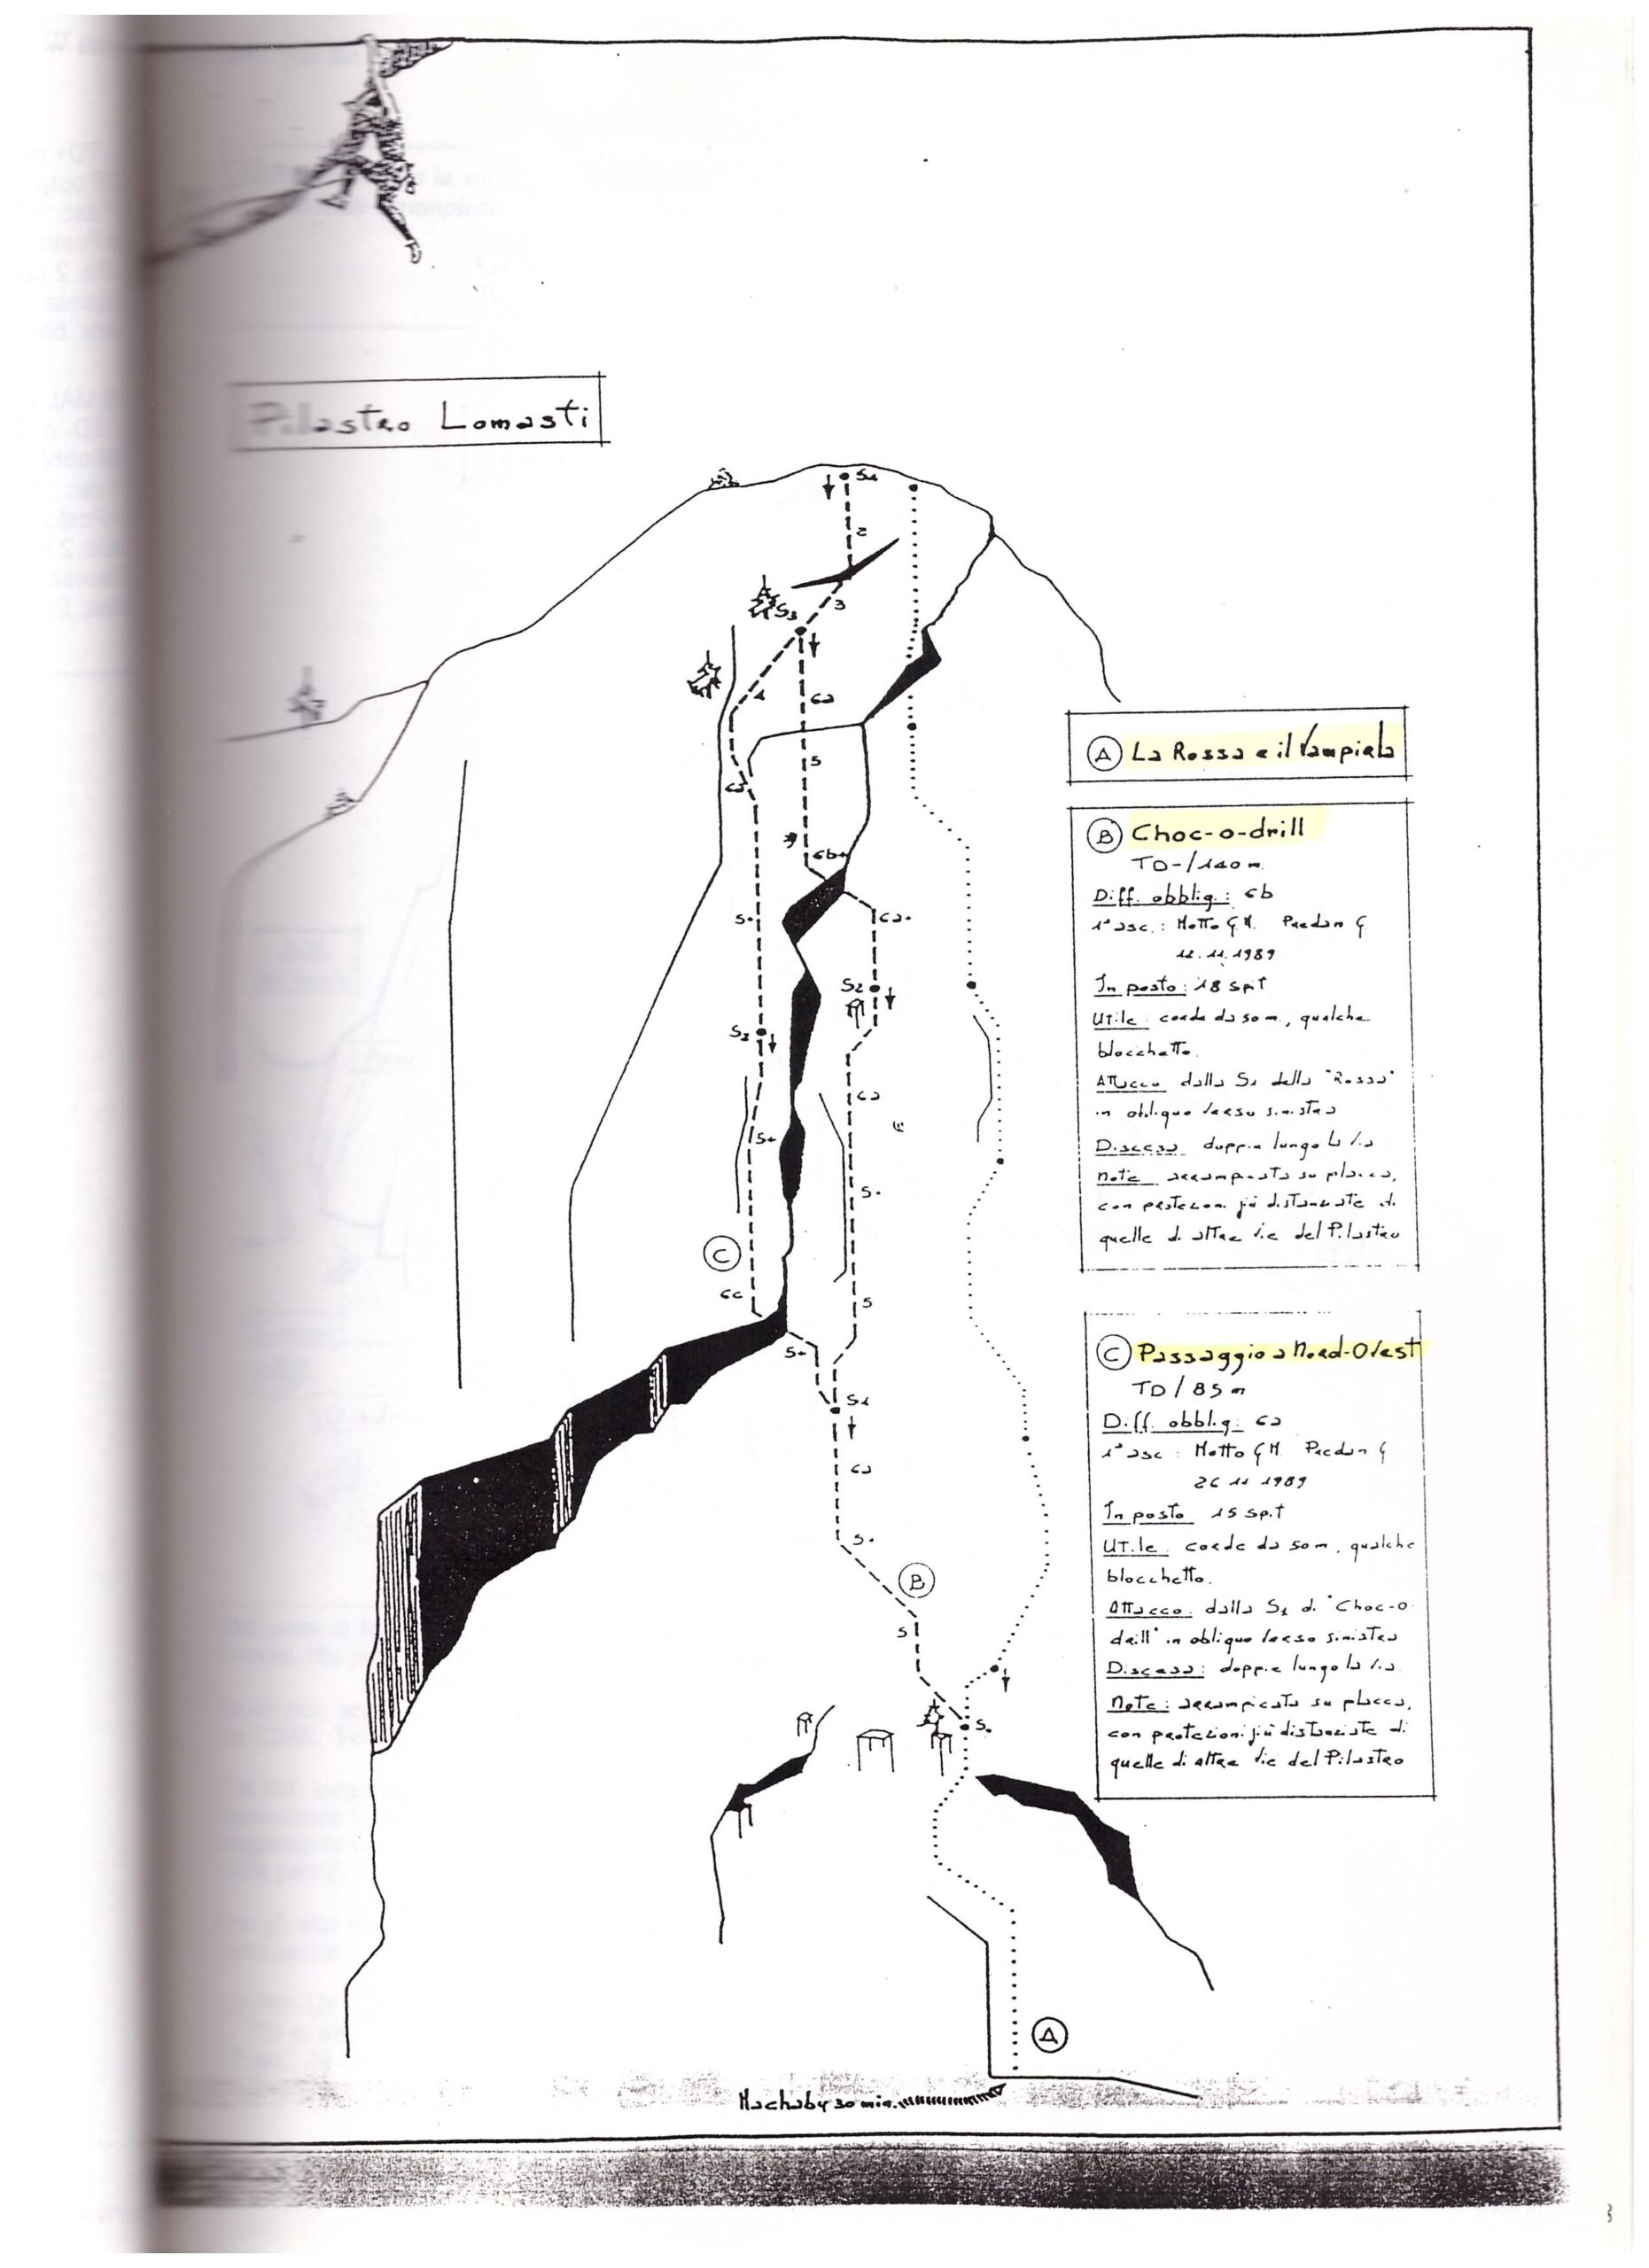 Pilastro Lomasti
S4
2
3
S3
4
6a
5
6a
6b+
5+
6a+
S2
S2
6a
5+
5+
C
5
6c
5+
S1
6a
5+
B
5
S.
A
Machaby 30 min.
A La Rossa e il Vampiro
B Choc-o-drill
TD-/140 m.
Diff. obblig.: 6b
1ª asc.: Motto G.M. Predan G.
12.11.1989
In posto: 18 spit
Utile: corde da 50 m., qualche
blocchetto.
Attacco dalla S1 della "Rossa"
in obliquo verso sinistra
Discesa doppie lungo la via
note arrampicata su placca,
con protezioni più distanziate di
quelle di altre vie del Pilastro
C Passaggio a Nord-Ovest
TD/85 m
Diff. obblig.: 6a
1ª asc: Motto G M. Predan G
26 11 1989
In posto 15 spit
Utile: corde da 50 m, qualche
blocchetto.
Attacco: dalla S1 di "Choc-o
drill" in obliquo verso sinistra
Discesa: doppie lungo la via.
Note: arrampicata su placca,
con protezioni più distanziate di
quelle di altre vie del Pilastro